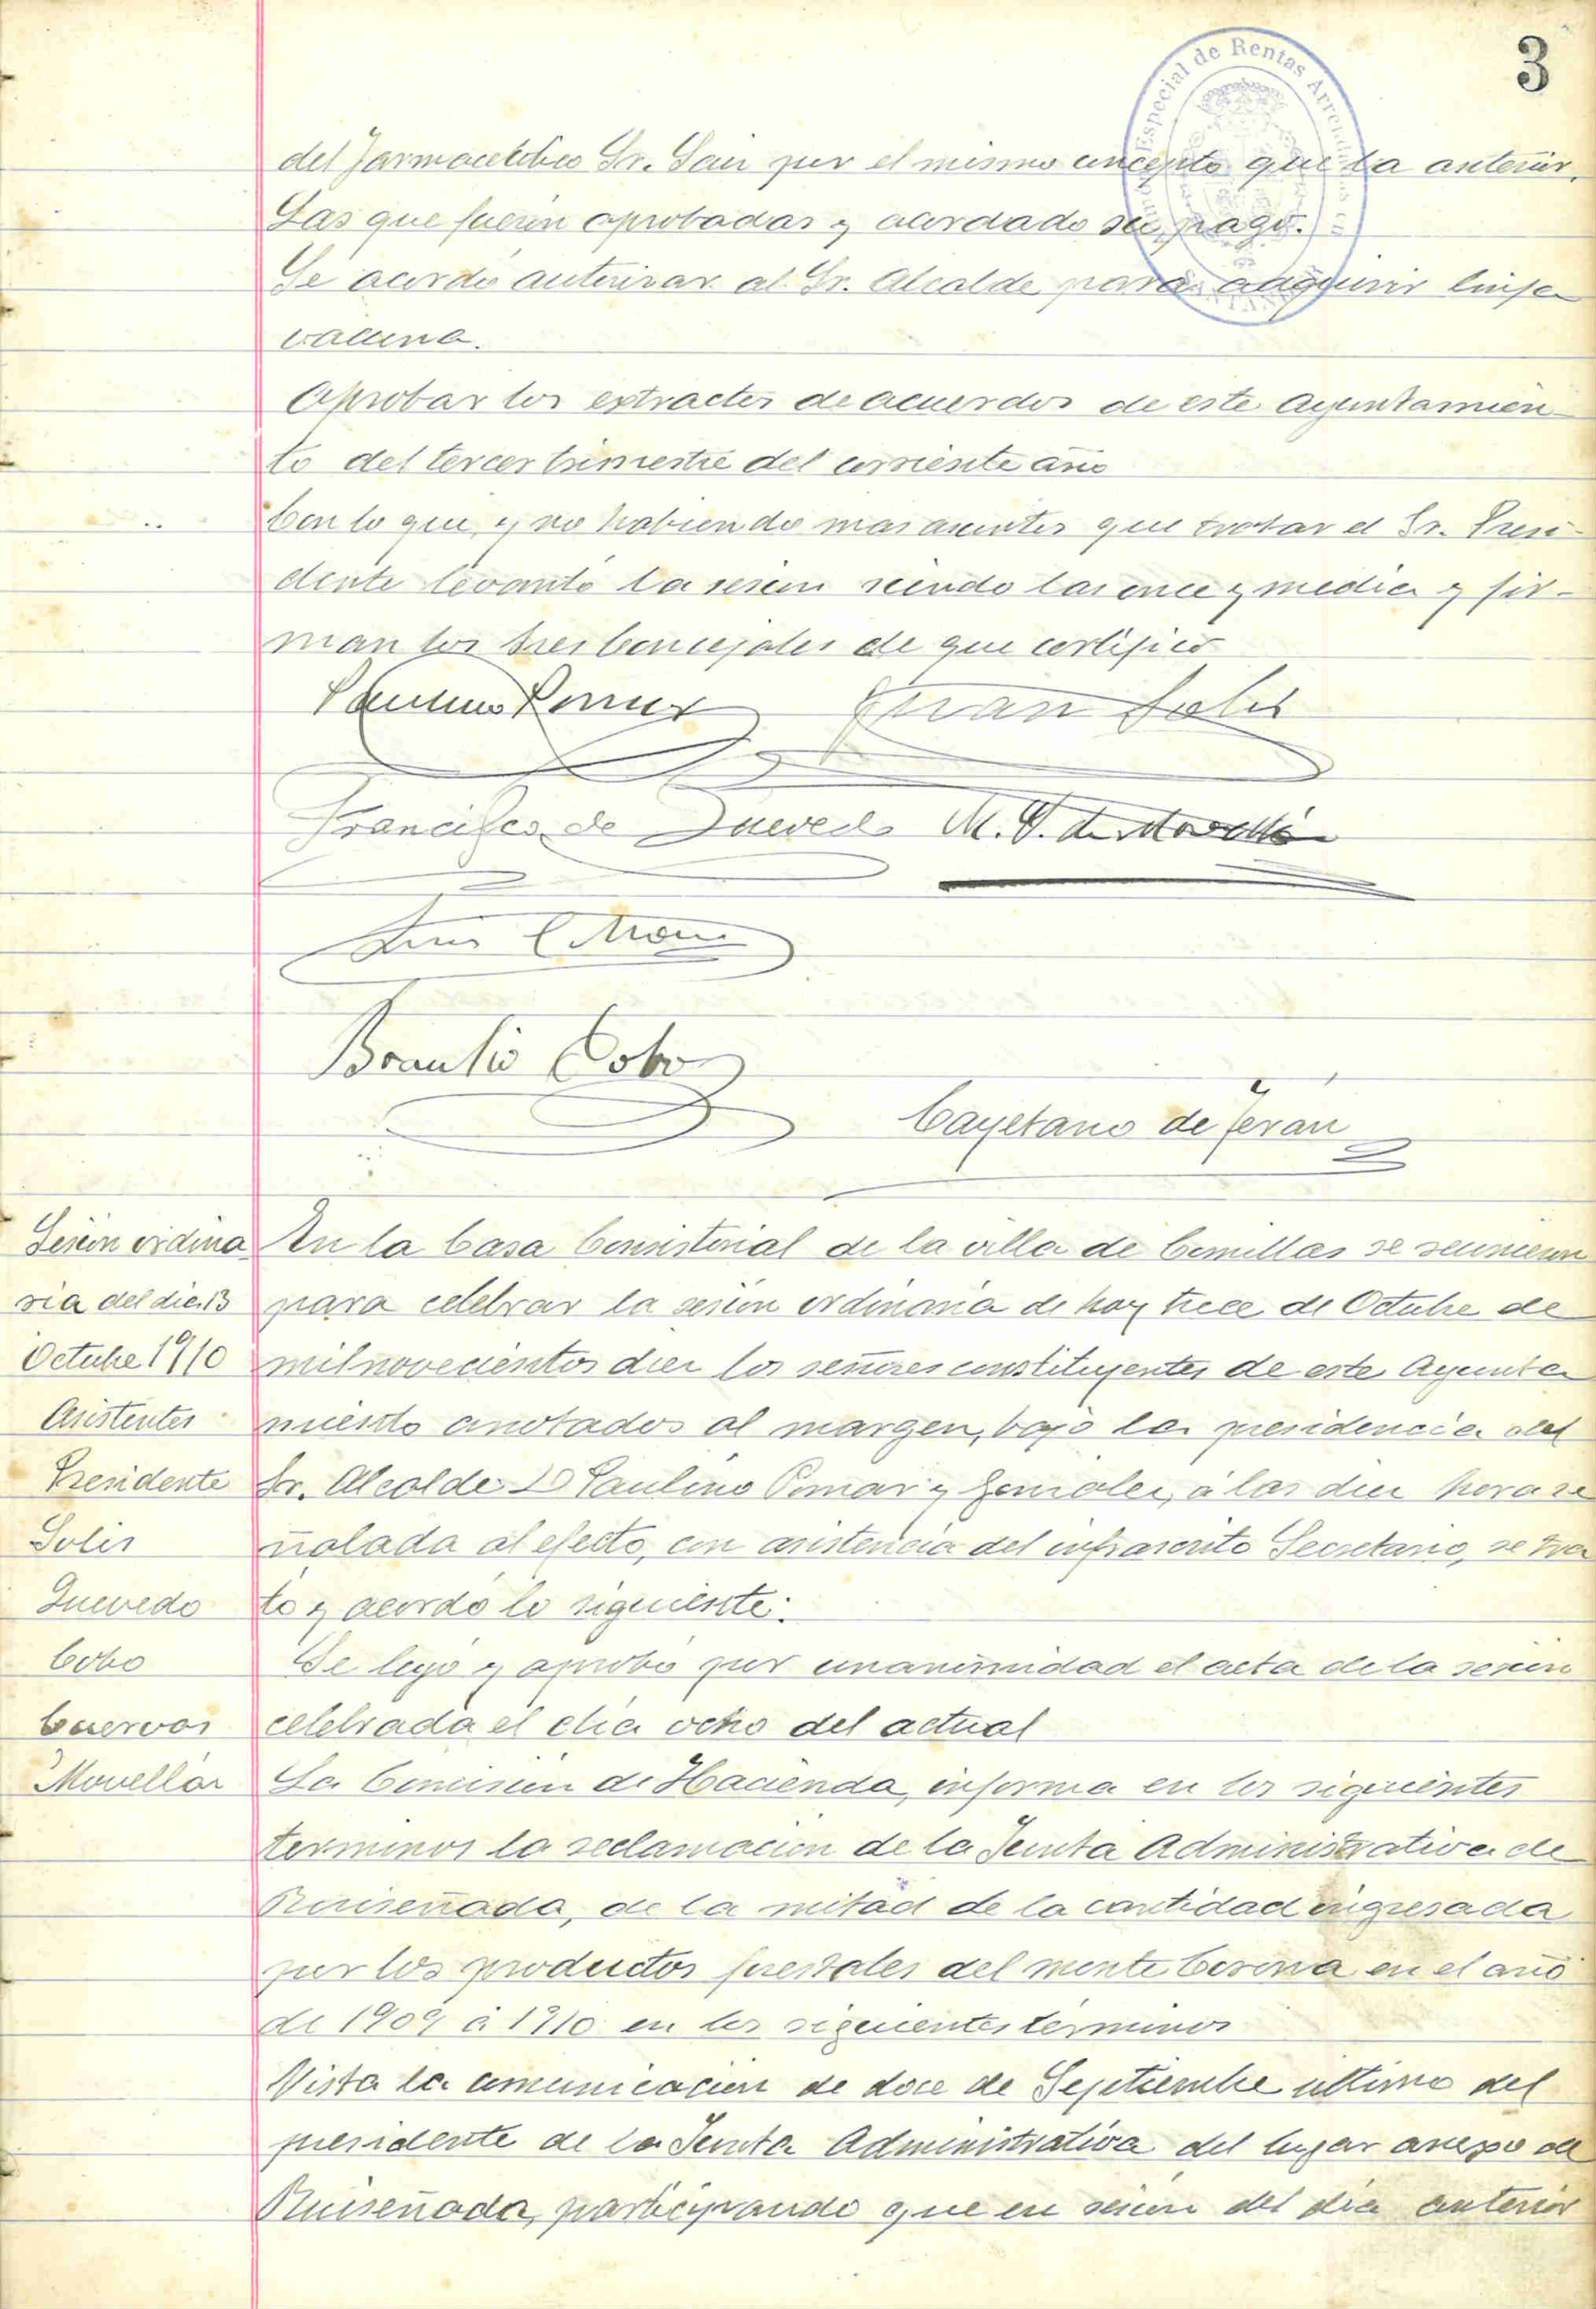 3
Especial de Rentas Arrendadas
del farmaceutico Sr. Sain por el mismo concepto que la anterior.
Las que fueron aprobadas y acordado su pago.
Se acordó autorizar al Sr. Alcalde para adquirir linfa
vacuna.
Aprobar los extractos de acuerdos de este Ayuntamien-
to del tercer trimestre del corriente año
Con lo que, y no habiendo mas asuntos que tratar el Sr. Presi-
dente levantó la sesion siendo las once y media y fir-
man los Sres Concejales de que certifico
Paulino Pomar Juan Solis
Francisco de Quevedo M. G. de Movellán
Luis
Braulio Cobo
Cayetano de Terán
Sesión ordina
ria del dia 13
Octubre 1910
Asistentes
Presidente
Solis
Quevedo
Cobo
Cuervos
Movellán
En la Casa Consistorial de la villa de Comillas se reunieron
para celebrar la sesión ordinaria de hoy trece de Octubre de
mil novecientos diez los señores constituyentes de este Ayunta
miento anotados al margen, bajo la presidencia del
Sr. Alcalde D Paulino Pomar y Gonzalez, á las diez hora se
ñalada al efecto, con asistencia del infrascrito Secretario, se tra
tó y acordó lo siguiente:
Se leyó y aprobó por unanimidad el acta de la sesion
celebrada el dia ocho del actual
La Comisión de Hacienda, informa en los siguientes
terminos la reclamacion de la Junta Administrativa de
Ruiseñada, de la mitad de la cantidad ingresada
por los productos forestales del monte Corona en el año
de 1909 á 1910 en los siguientes terminos
Vista la comunicacion de doce de Septiembre ultimo del
presidente de la Junta Administrativa del lugar anexo de
Ruiseñada, participando que en sesion del dia anterior